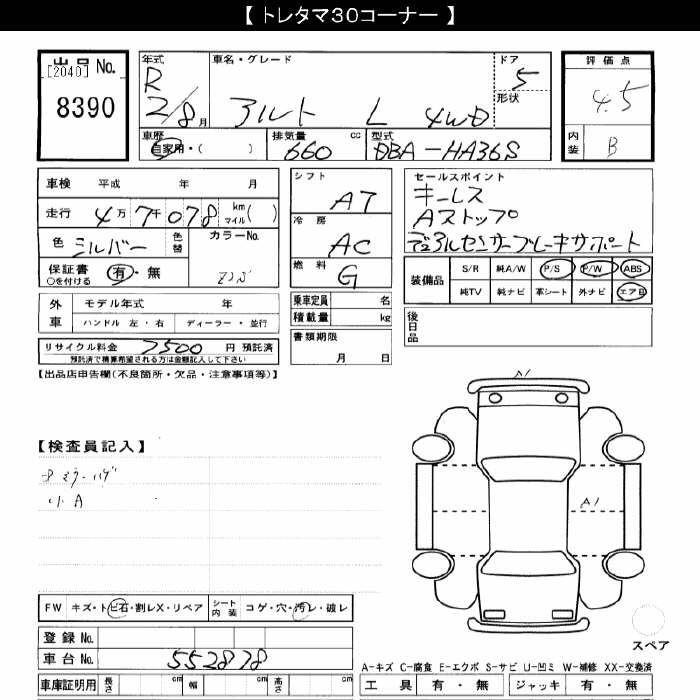 【 トレタマ30コーナー 】
出品 No.
[2040]
8390
年式
R 2/8月
車名・グレード
アルト L 4WD
ドア
5
形状
評価点
4.5
内装
B
車歴
自家用・( )
排気量 cc
660
型式
DBA-HA36S
車検 平成 年 月
走行 4万7千078 km マイル ( )
色 シルバー 色替
カラーNo.
保証書 有・無
○を付ける
外車
モデル年式 年
ハンドル 左・右 ディーラー・並行
リサイクル料金 7500 円 預託済
預託済で精算希望される方は金額記入して下さい
シフト
AT
冷房
AC
燃料
G
乗車定員 名
積載量 kg
書類期限
月 日
セールスポイント
キーレス
Aストップ
デュアルセンサーブレーキサポート
装備品
S/R 純A/W P/S P/W ABS
純TV 純ナビ 革シート 外ナビ エアB
後日品
【出品店申告欄(不良箇所・欠品・注意事項等)】
【検査員記入】
小A
A1
A1
FW キズ・トビ石・割レX・リペア
シート内装 コゲ・穴・汚レ・破レ
登録 No.
車台 No. 552878
車庫証明用 長さ cm 幅 cm 高さ cm
スペア
A-キズ C-腐食 E-エクボ S-サビ U-凹ミ W-補修 XX-交換済
工具 有・無 ジャッキ 有・無